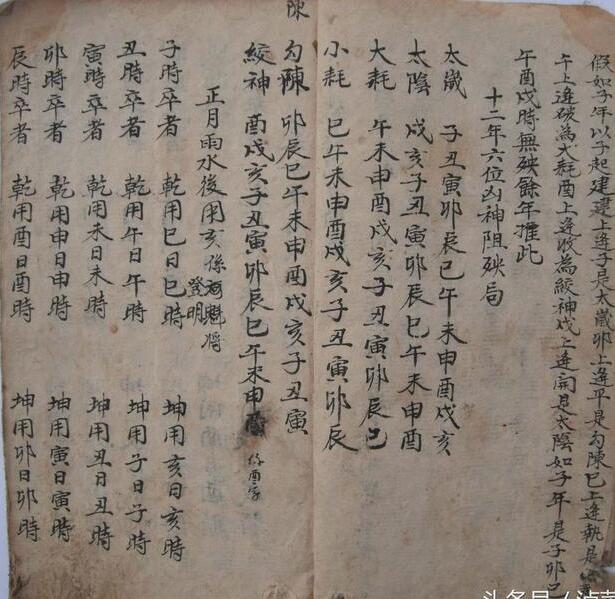 假如子年以子起建建上逢子是太歲卯上逢平是勾陳巳上逢執是小耗
午上逢破為大耗酉上逢收為絞神戌上逢開是太陰如子年是子卯巳
午酉戌時無殃餘年推此
十二年六位凶神阻殃局
太歲 子丑寅卯辰巳午未申酉戌亥
太陰 戌亥子丑寅卯辰巳午未申酉
大耗 午未申酉戌亥子丑寅卯辰巳
小耗 巳午未申酉戌亥子丑寅卯辰
陳
勾陳 卯辰巳午未申酉戌亥子丑寅
絞神 酉戌亥子丑寅卯辰巳午未申
正月雨水後用亥係河魁將
登明
子時卒者 乾用巳日巳時 坤用亥日亥時
丑時卒者 乾用午日午時 坤用子日子時
寅時卒者 乾用未日未時 坤用丑日丑時
卯時卒者 乾用申日申時 坤用寅日寅時
辰時卒者 乾用酉日酉時 坤用卯日卯時